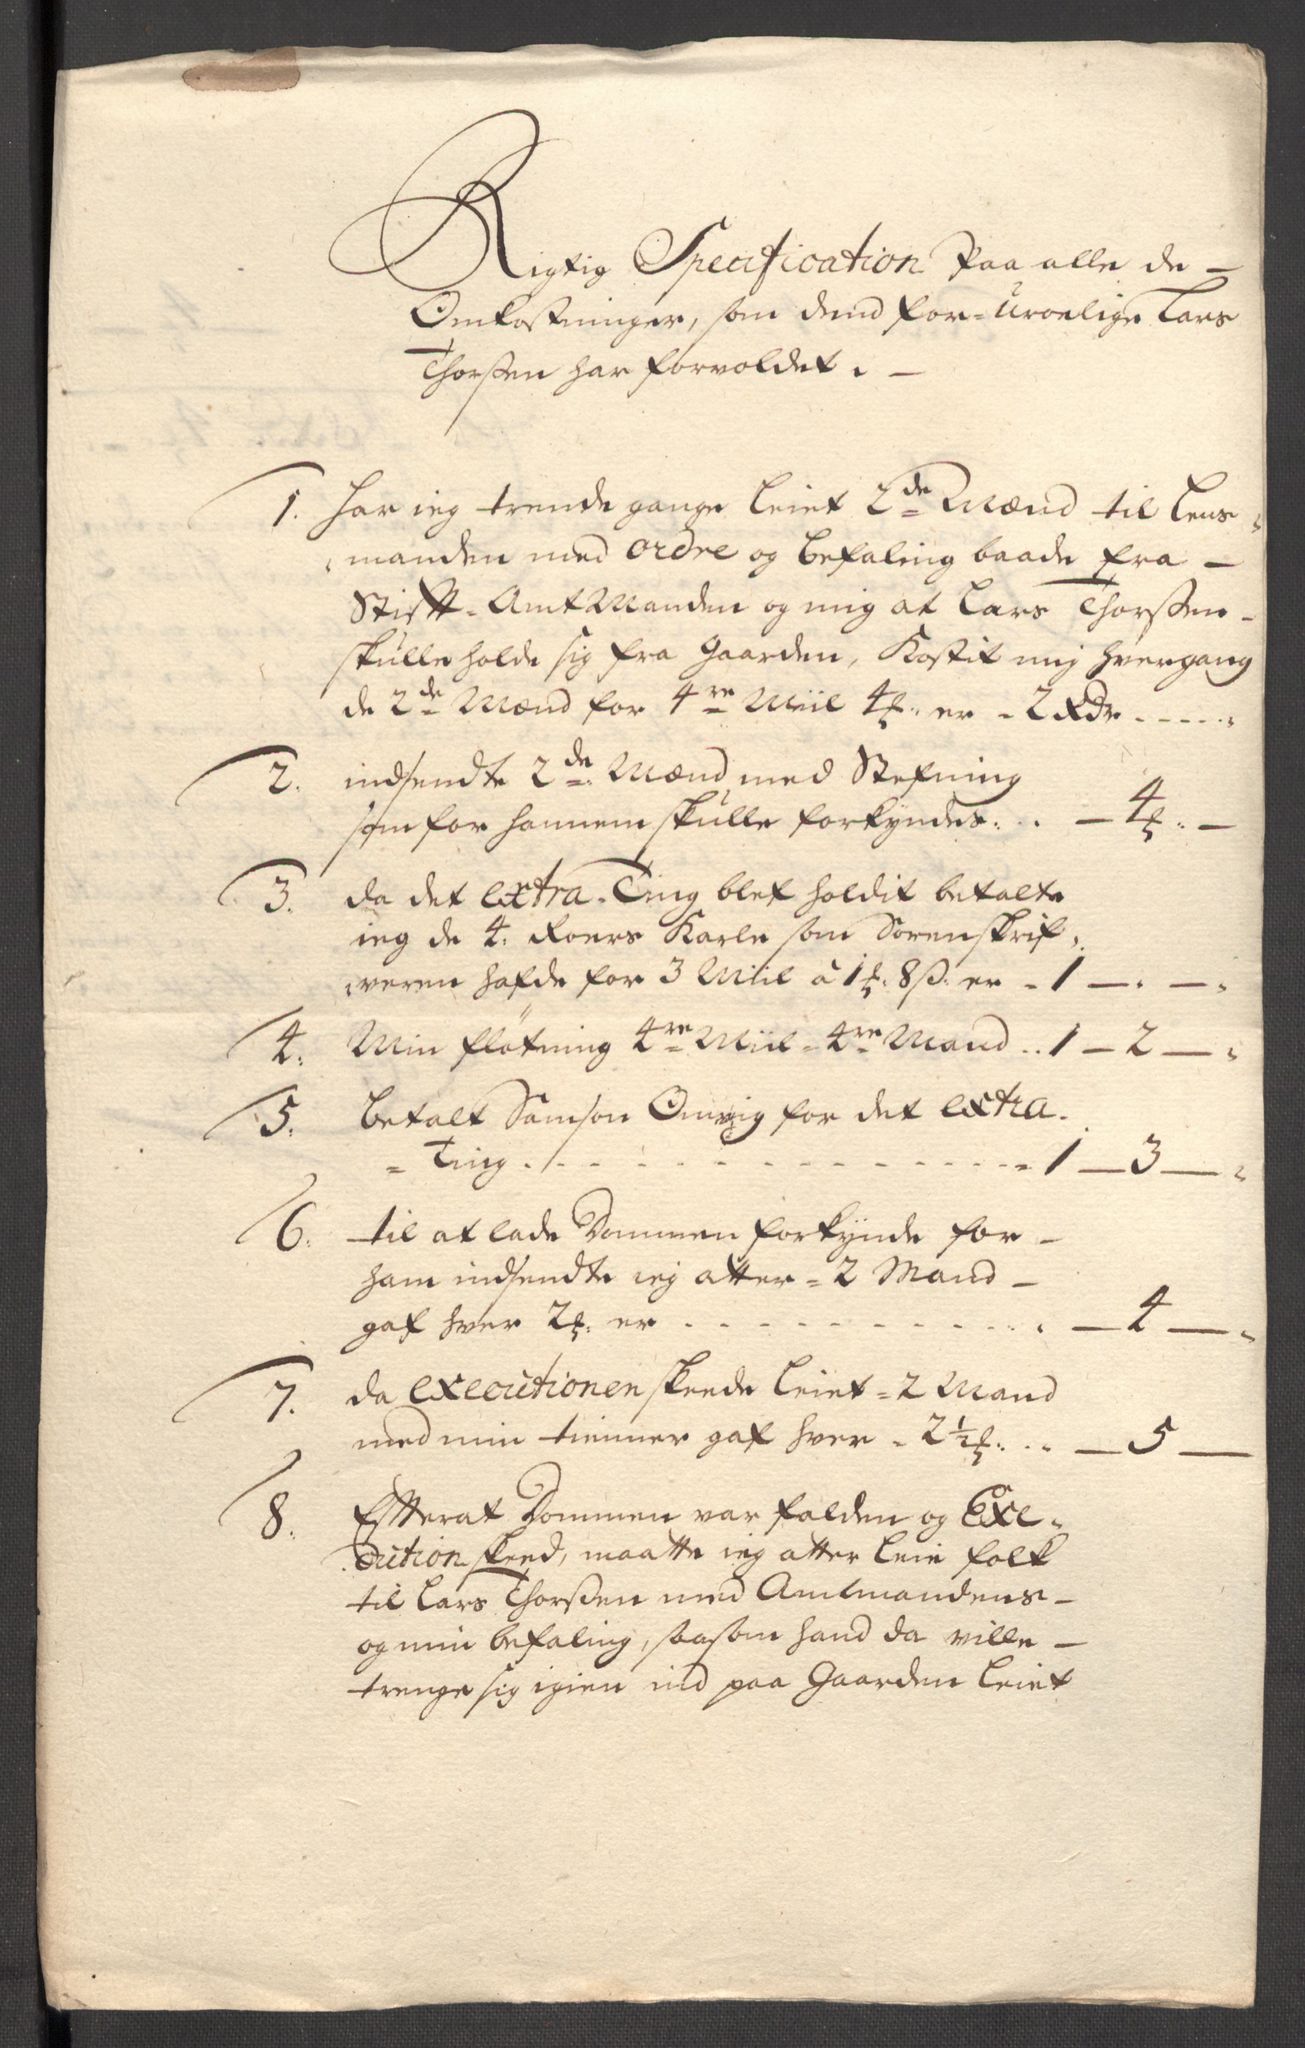 Rigtig Specification Paa alle de –
Omkostninger, som dend for-uroelige Lars
Thorssen har forvoldet. –
1. Har ieg trende gange leiet 2de Mænd til Lens-
manden med ordre og befaling baade fra –
Stift-AmtManden og mig at Lars Thorssen –
skulle holde sig fra Gaarden, Kostit mig hvergang
de 2de Mænd for 4re Miil 4 ₰. er - 2 Rdr - - - -
2. indsendte 2de Mænd med Stefning
som for hannem skulle forkyndes. . – 4 ₰. –
3. da det extra-Ting blef holdit betalte
ieg de 4. Roers Karle som Sorenskrif-
veren hafde for 3 Miil à 1 ₰. 8 ß. er - 1 – . –
4. Min fløtning 4re Miil - 4re Mand . . 1 – 2 –
5. betalt Samson Omvig for det extra-
- Ting . - - - - - - 1 – 3 –
6. til at lade Dommen forkynde for –
ham indsendte ieg atter - 2 Mand –
gaf hver 2 ₰. er - - - - - - – 4 –
7. da executionen skeede leiet - 2 Mand
med min tienner gaf hver - 2 ½ ₰. . . – 5 –
8. Efterat Dommen var falden og Exe-
cution skeed, maatte ieg atter leie folk
til Lars Thorssen med Amtmandens –
og min befaling, saasom hand da ville –
trenge sig igien ind paa Gaarden leiet